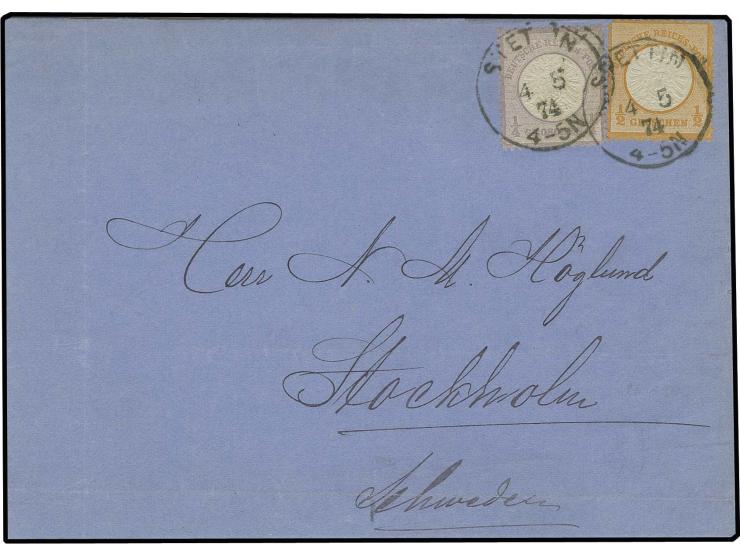 STETTIN
4 5
74
4-5N
DEUTSCHE REICHS-POST
1/4 GROSCHEN 1/4
STETTIN
4 5
74
4-5N
DEUTSCHE REICHS-POST
1/2 GROSCHEN 1/2
Herr N. M. Höglund
Stockholm
Schweden